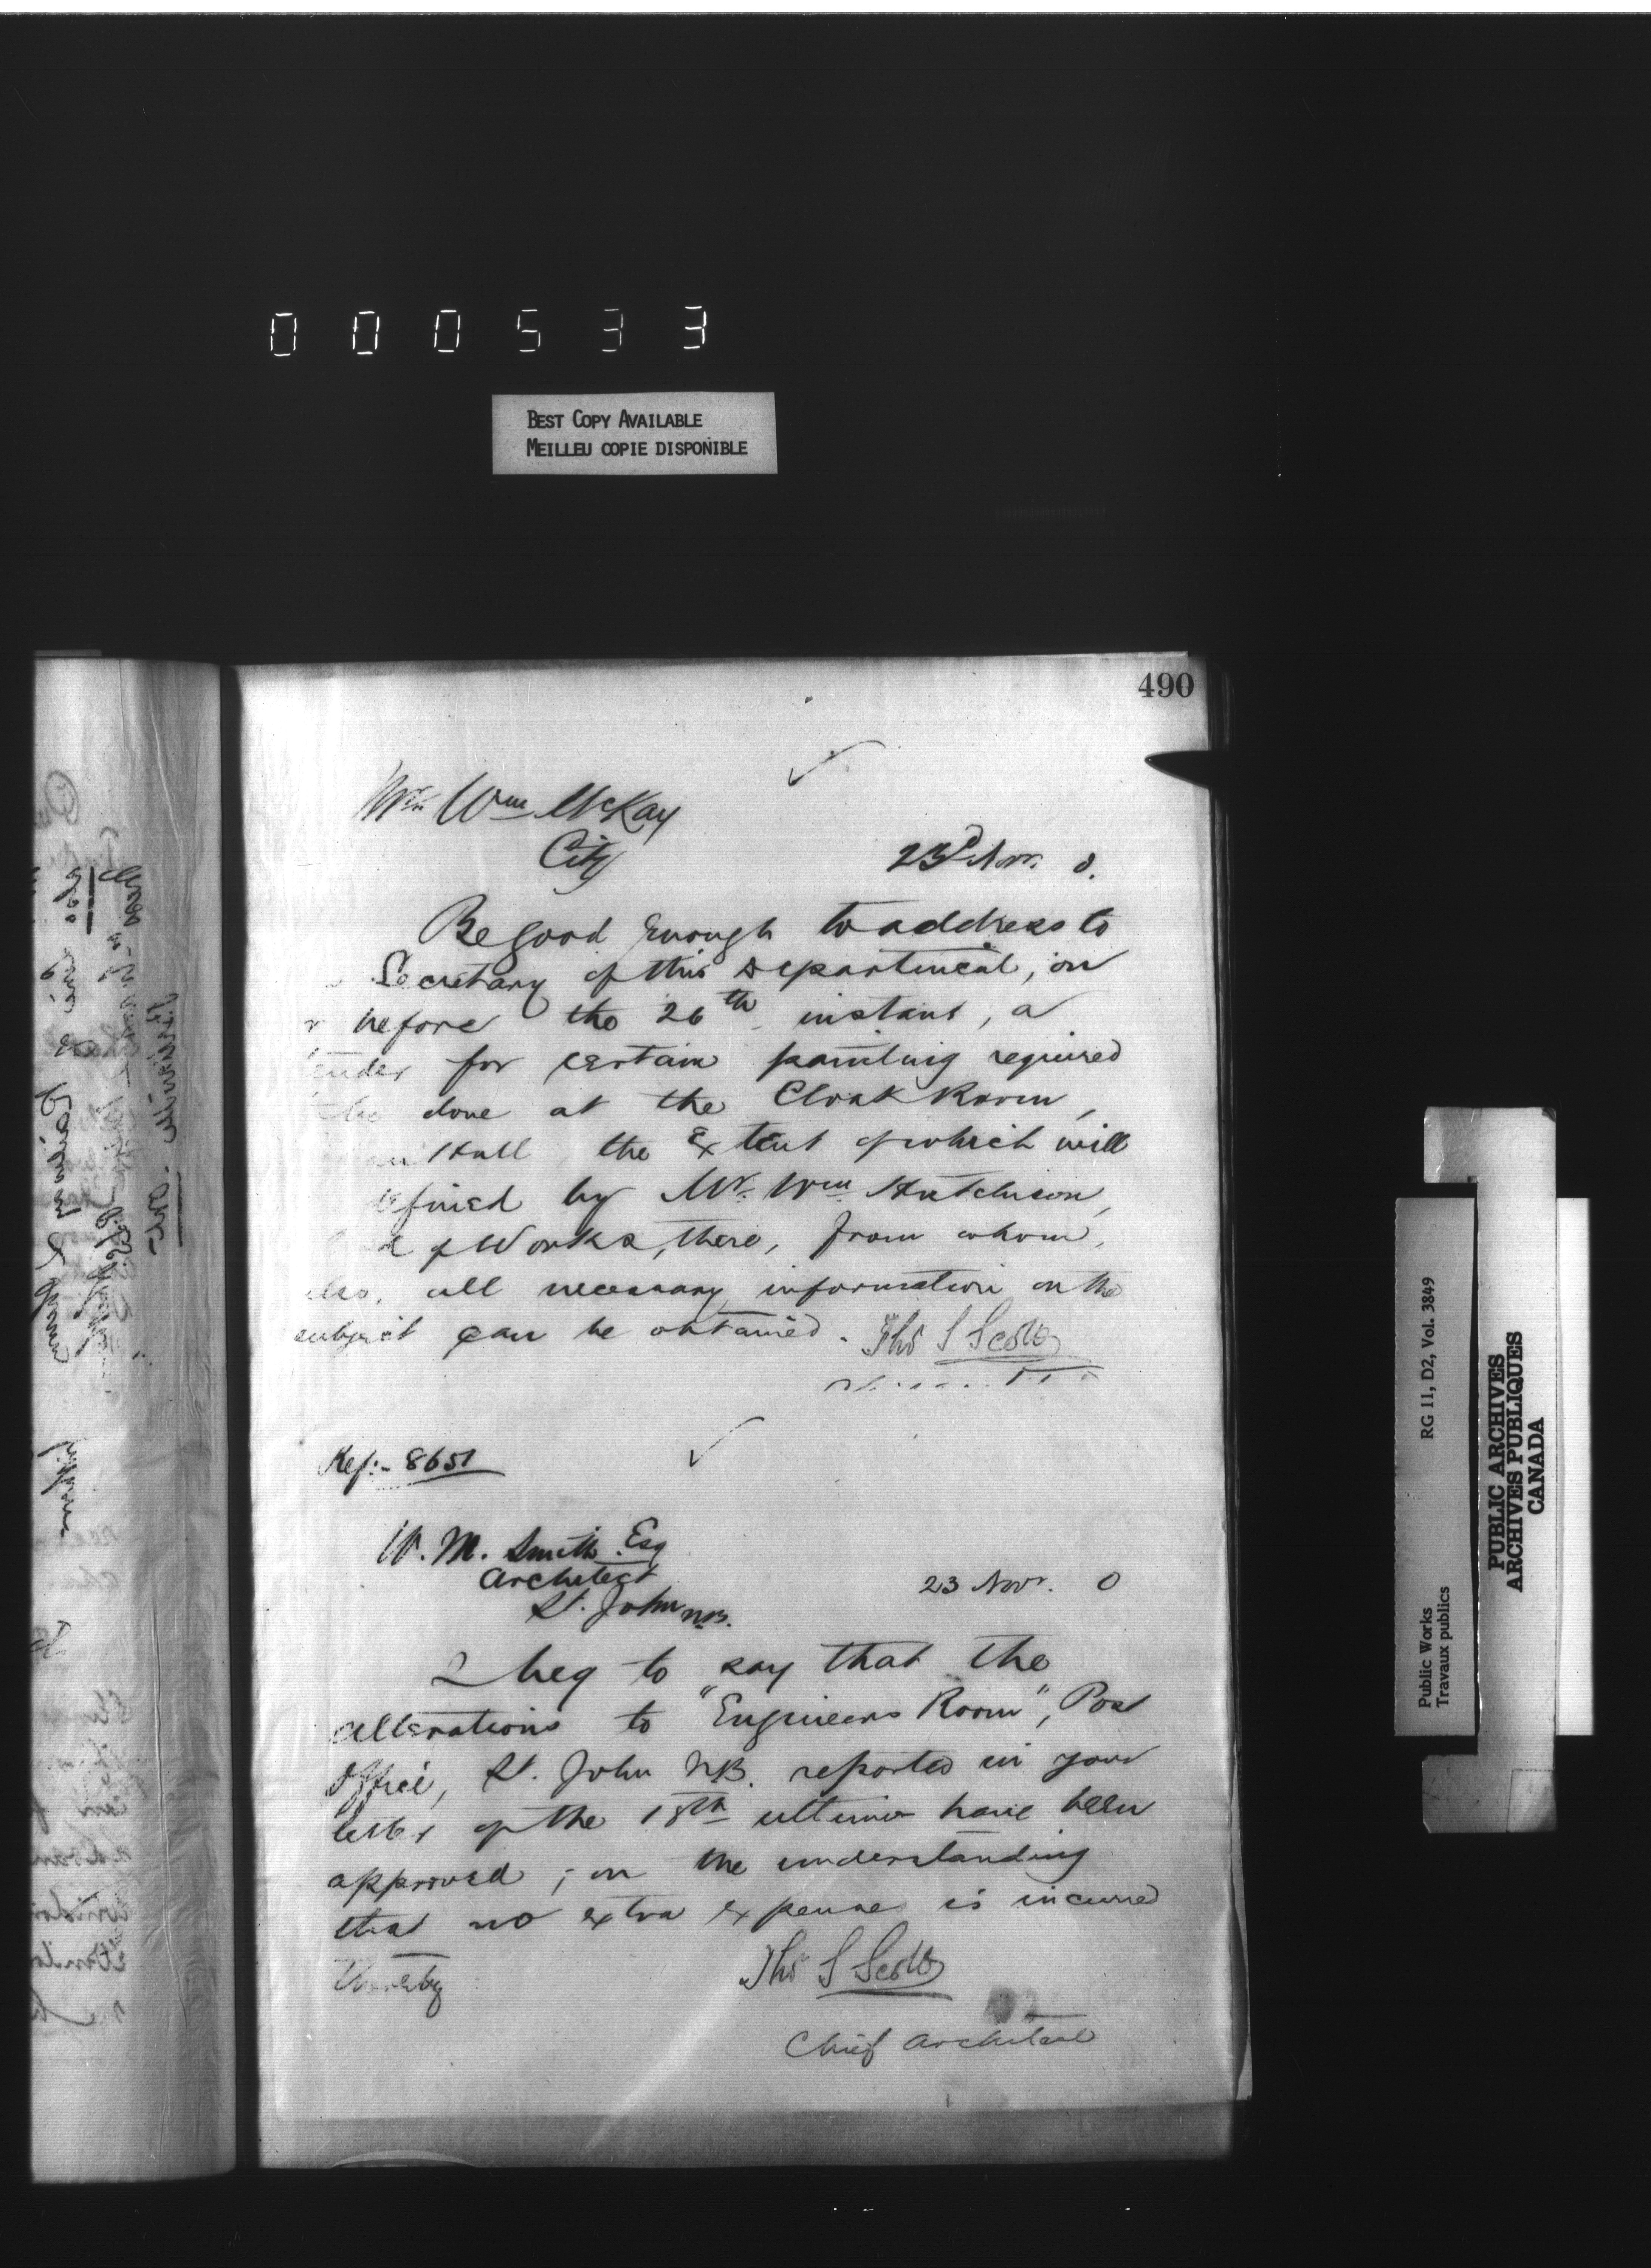 000533
BEST COPY AVAILABLE
MEILLEU COPIE DISPONIBLE
490
Mr. Wm McKay
City
23d Nov. 0.
Be good enough to address to
Secretary of this Department, on
r before the 26th instant, a
tender for certain painting required
to be done at the Cloak Room,
Hall the extent of which will
efined by Mr. Wm Hutchison,
of Works, there, from whom,
also, all necessary information on the
subject can be obtained.
Thos S Scott
Ref:- 8651
W. M. Smith Esq
Architect
St. John NB.
23 Novr. 0
I beg to say that the
alterations to "Engineers Room", Post
Office, St. John NB. reported in your
letter of the 18th ultimo have been
approved; on the understanding
that no extra expense is incurred
thereby
Thos S Scott
Chief Architect
Public Works
Travaux publics
RG 11, D2, Vol. 3849
PUBLIC ARCHIVES
ARCHIVES PUBLIQUES
CANADA